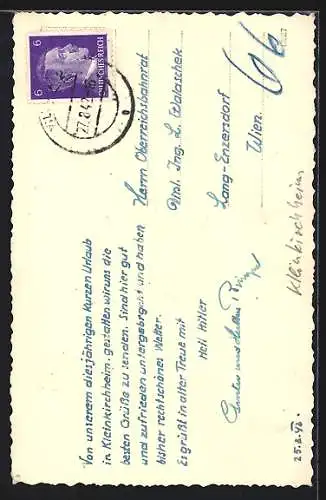 Von unserem diesjährigen kurzen Urlaub
in Kleinkirchheim, gestatten wir uns die
besten Grüße zu senden. Sind hier gut
und zufrieden untergebracht und haben
bisher recht schönes Wetter.
Es grüßt in alter Treue mit
Heil Hitler
25.8.42.
6
6
DEUTSCHES REICH
27.8.42
Herrn Oberreichsbahnrat
Dipl. Ing. L. Walaschek
Lang-Enzersdorf
Wien.
Kleinkirchheim